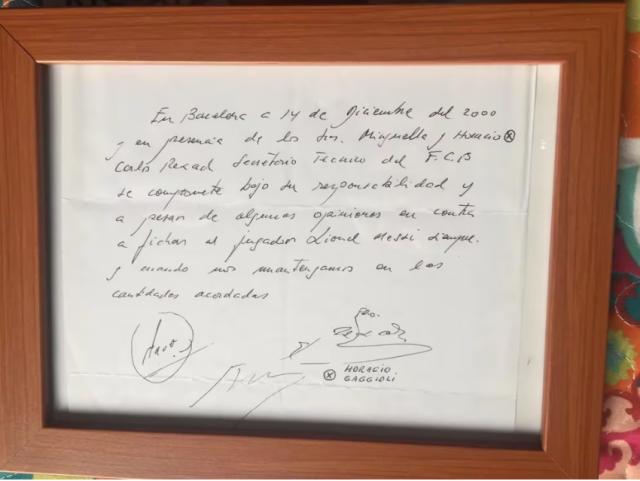 En Barcelona a 14 de Diciembre del 2000
y en presencia de los Srs. Minguella y Horacio ⓧ
Carlos Rexach Secretario Tecnico del F.C.B
se compromete bajo su responsabilidad y
a pesar de algunas opiniones en contra
a fichar al jugador Lionel Messi siempre.
y cuando nos mantengamos en las
cantidades acordadas
ⓧ HORACIO
GAGGIOLI